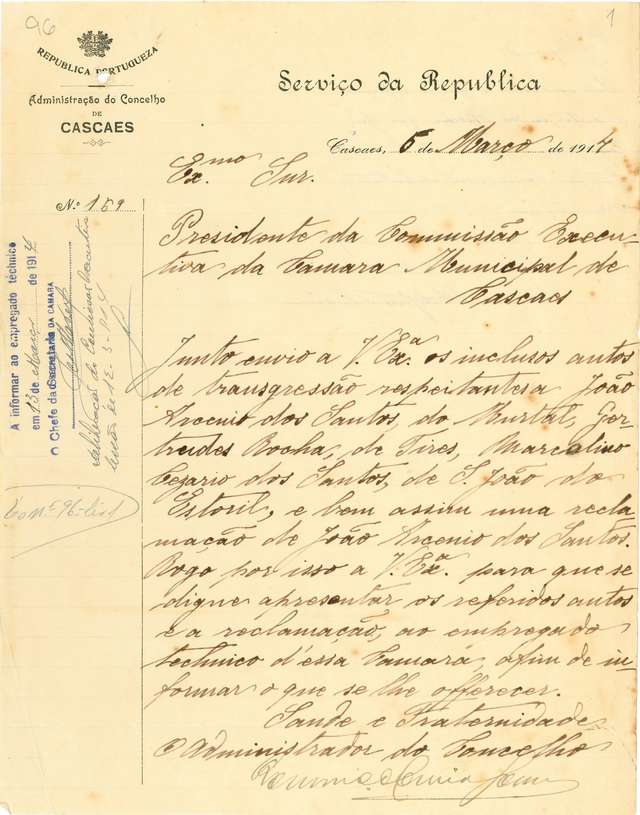 96
1
REPUBLICA PORTUGUEZA
Administração do Concelho
DE
CASCAES
Serviço da Republica
Cascaes, 5 de Março de 1914
Nº 159
Exmo Snr.
Presidente da Commissão Execu-
tiva da Camara Municipal de
Cascaes
Junto envio a V. Exª. os inclusos autos
de transgressão respeitantes a João
Arcenio dos Santos, do Murtal, Ger-
trudes Rocha, de Tires, Marcolino
Cezario dos Santos, de S. João do
Estoril, e bem assim uma recla-
mação de João Arcenio dos Santos.
Rogo por isso a V. Exª. para que se
digne apresentar os referidos autos
e a reclamação, ao empregado
technico d'essa Camara, afim de in-
formar o que se lhe offerecer.
Saude e Fraternidade
O Administrador do Concelho
A informar ao empregado téchnico
em 13 de Março de 1914
O Chefe da Secretaria DA CAMARA
deliberação da Comissão Executiva
de 12-3-914